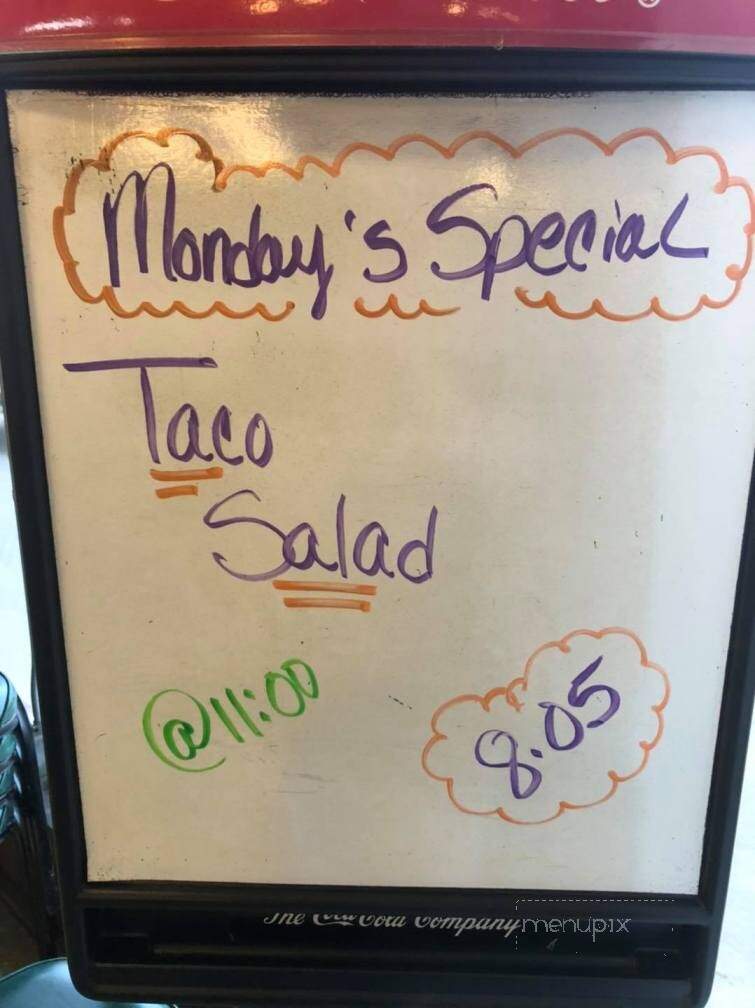 Monday's Special
Taco
Salad
@11:00
8.05
The Coca Cola Company
menupix